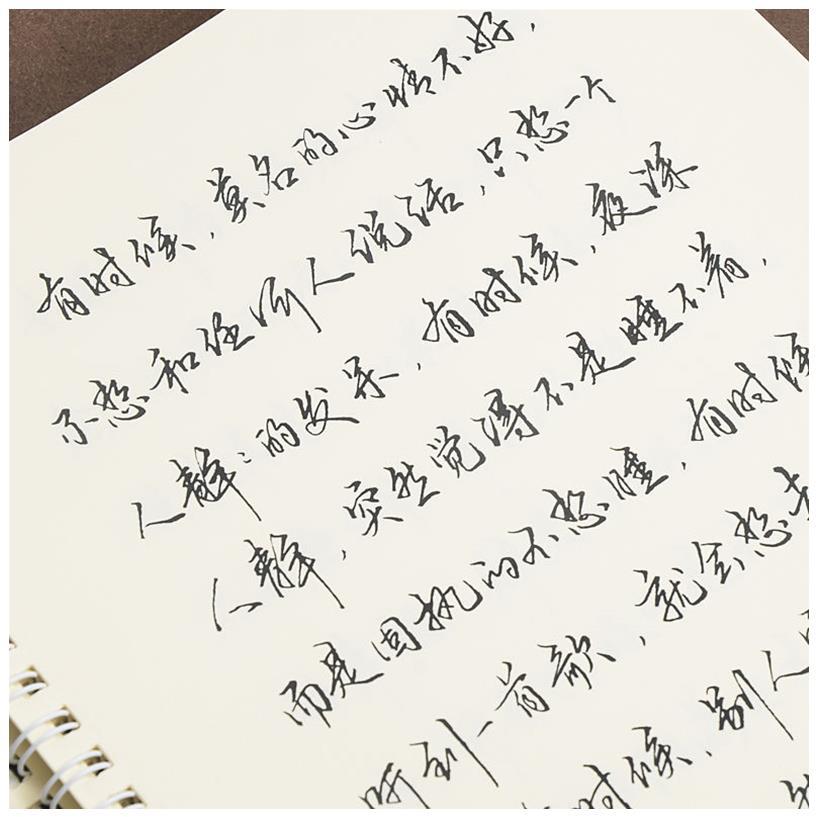 有时候，莫名的心情不好，
不想和任何人说话，只想一个
人静：的发呆，有时候，夜深
人静，突然觉得不是睡不着，
而是固执的不想睡，有时候
听到一首歌，就会想
时候，别人